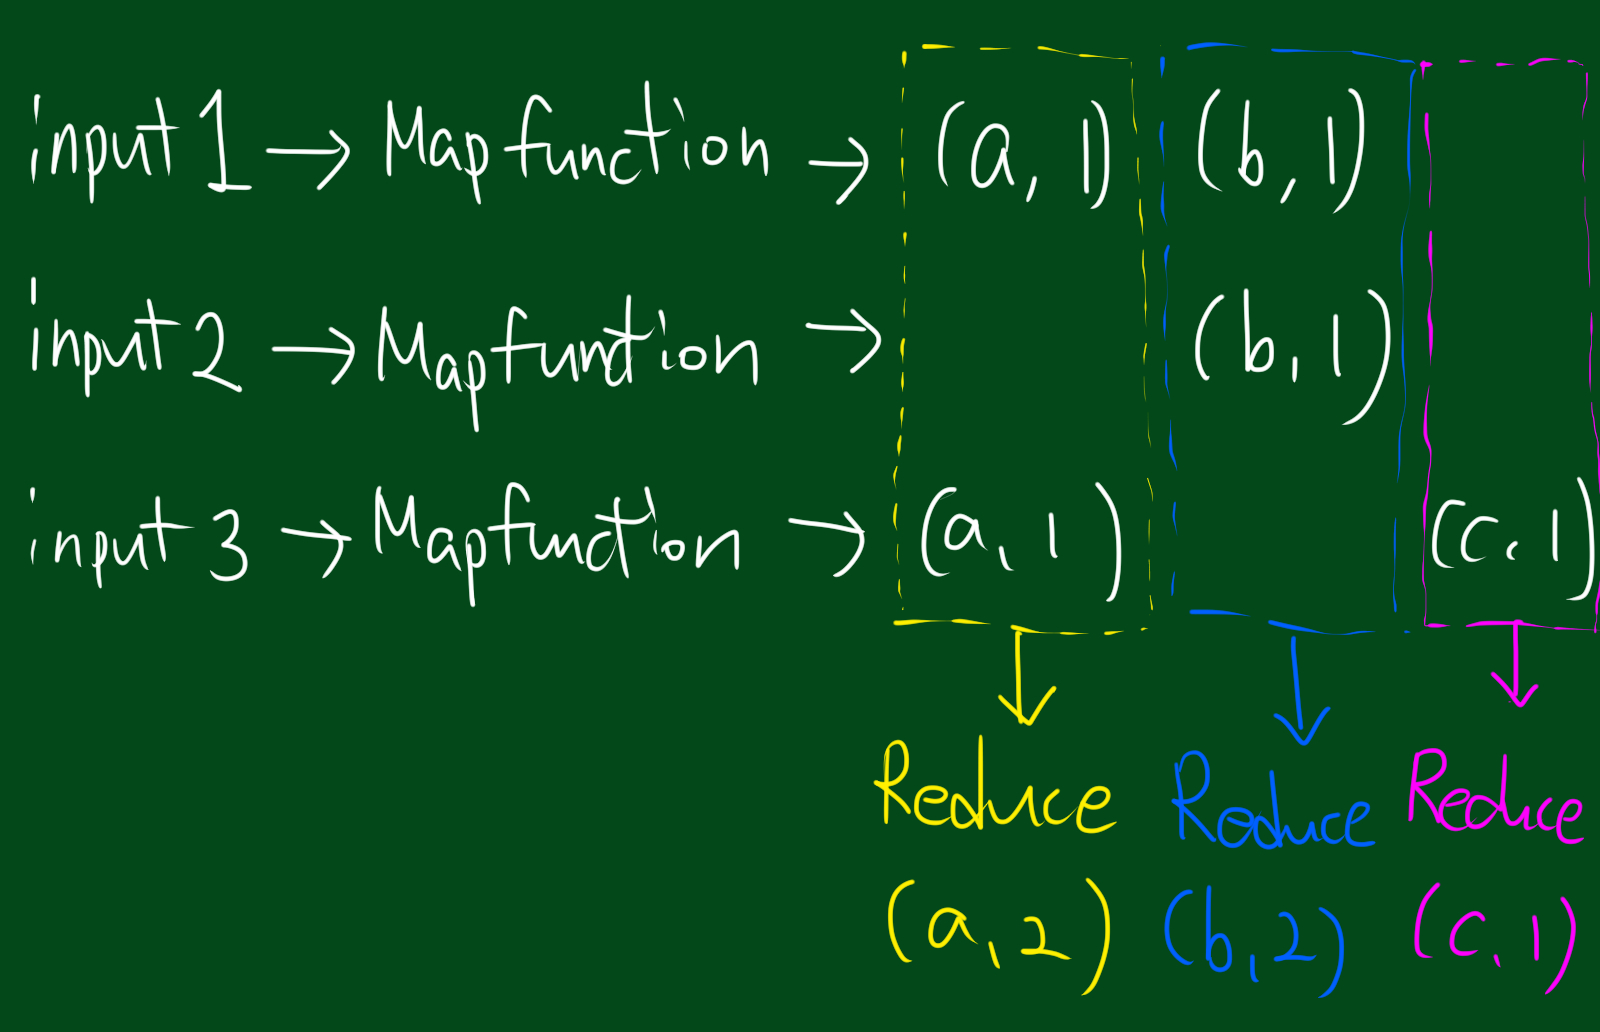 input 1 → Map function → (a, 1) (b, 1)
input 2 → Map function → (b, 1)
input 3 → Map function → (a, 1) (c, 1)
Reduce Reduce Reduce
(a, 2) (b, 2) (c, 1)